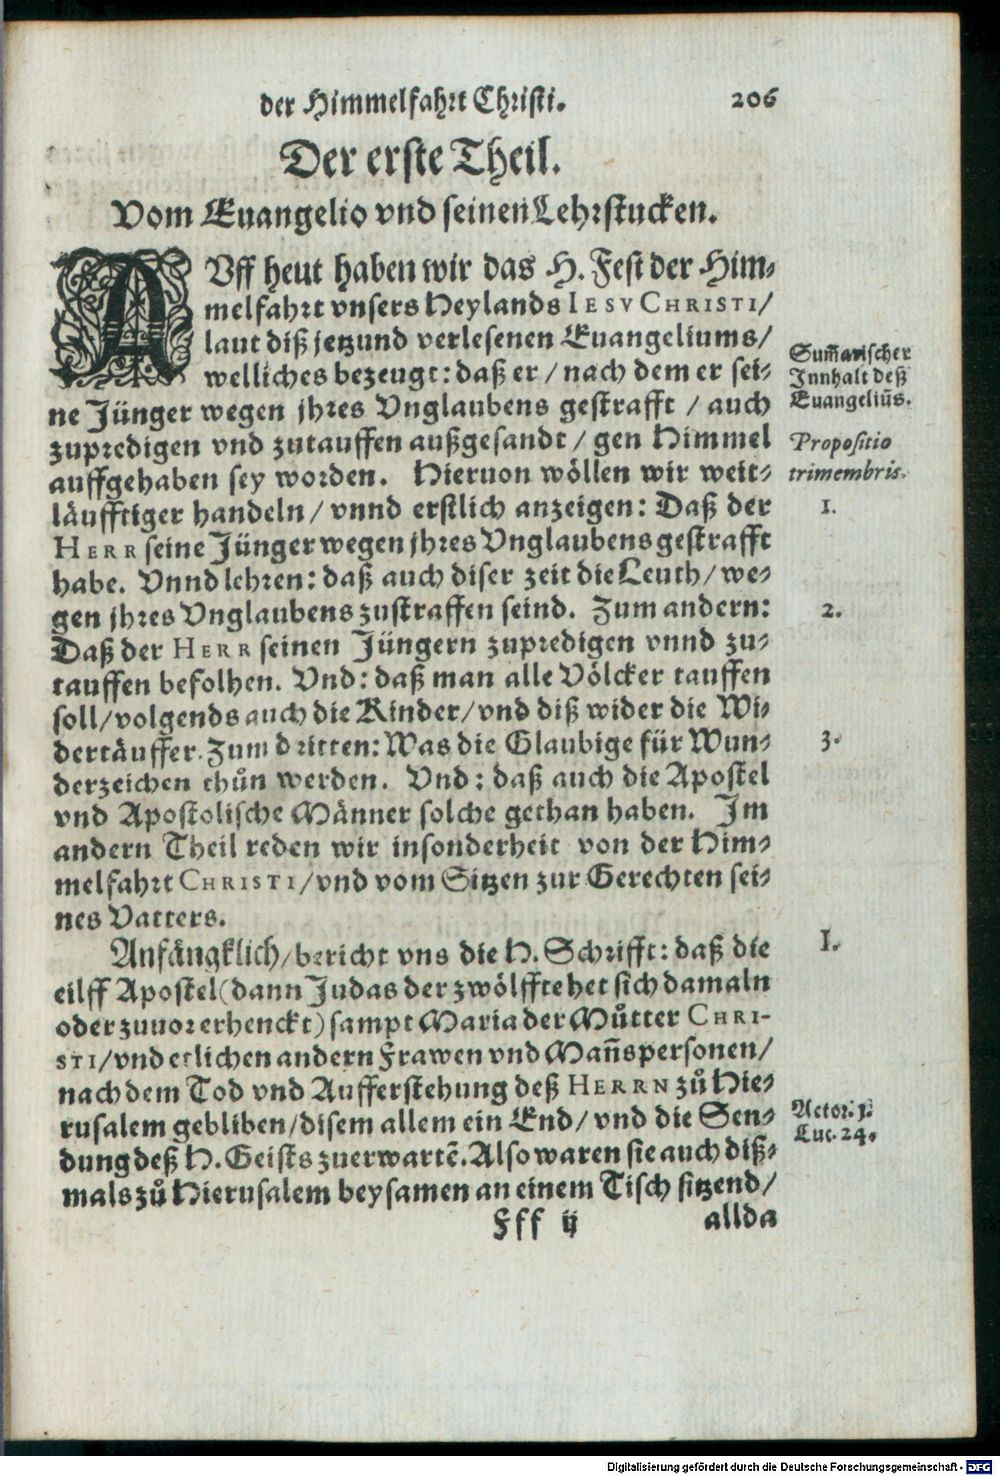 der Himmelfahrt Christi. 206
Der erste Theil.
Vom Euangelio vnd seinen Lehrstucken.
AUff heut haben wir das H. Fest der Him-
melfahrt vnsers Heylands IESV CHRISTI/
laut diß jetzund verlesenen Euangeliums/
welliches bezeugt: daß er / nach dem er sei-
ne Jünger wegen jhres Vnglaubens gestrafft / auch
zupredigen vnd zutauffen außgesandt / gen Himmel
auffgehaben sey worden. Hieruon wöllen wir weit-
läufftiger handeln / vnnd erstlich anzeigen: Daß der
HERR seine Jünger wegen jhres Vnglaubens gestrafft
habe. Vnnd lehren: daß auch diser zeit die Leuth / we-
gen jhres Vnglaubens zustraffen seind. Zum andern:
Daß der HERR seinen Jüngern zupredigen vnnd zu-
tauffen befolhen. Vnd: daß man alle Völcker tauffen
soll/volgends auch die Kinder/vnd diß wider die Wi-
dertäuffer. Zum dritten: Was die Glaubige für Wun-
derzeichen thůn werden. Vnd: daß auch die Apostel
vnd Apostolische Männer solche gethan haben. Im
andern Theil reden wir insonderheit von der Him-
melfahrt CHRISTI/vnd vom Sitzen zur Gerechten sei-
nes Vatters.
Anfängklich/bericht vns die H. Schrifft: daß die
eilff Apostel (dann Judas der zwölffte het sich damaln
oder zuuor erhenckt) sampt Maria der Můtter CHRI-
STI/vnd etlichen andern Frawen vnd Mañspersonen/
nach dem Tod vnd Aufferstehung deß HERRN zů Hie-
rusalem gebliben/disem allem ein End/ vnd die Sen-
dung deß H. Geists zuerwartẽ. Also waren sie auch diß-
mals zů Hierusalem beysamen an einem Tisch sitzend/
Fff ij allda
Sum̃arischer
Innhalt deß
Euangeliũs.
Propositio
trimembris.
1.
2.
3.
I.
Actor. 1.
Luc. 24.
Digitalisierung gefördert durch die Deutsche Forschungsgemeinschaft - DFG